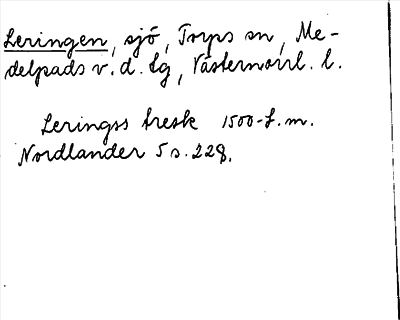 Leringen, sjö, Torps sn, Me-
delpads v. d. tg, Västernorrl. l.
Leringss tresk 1500-t. m.
Nordlander 5 s. 228.